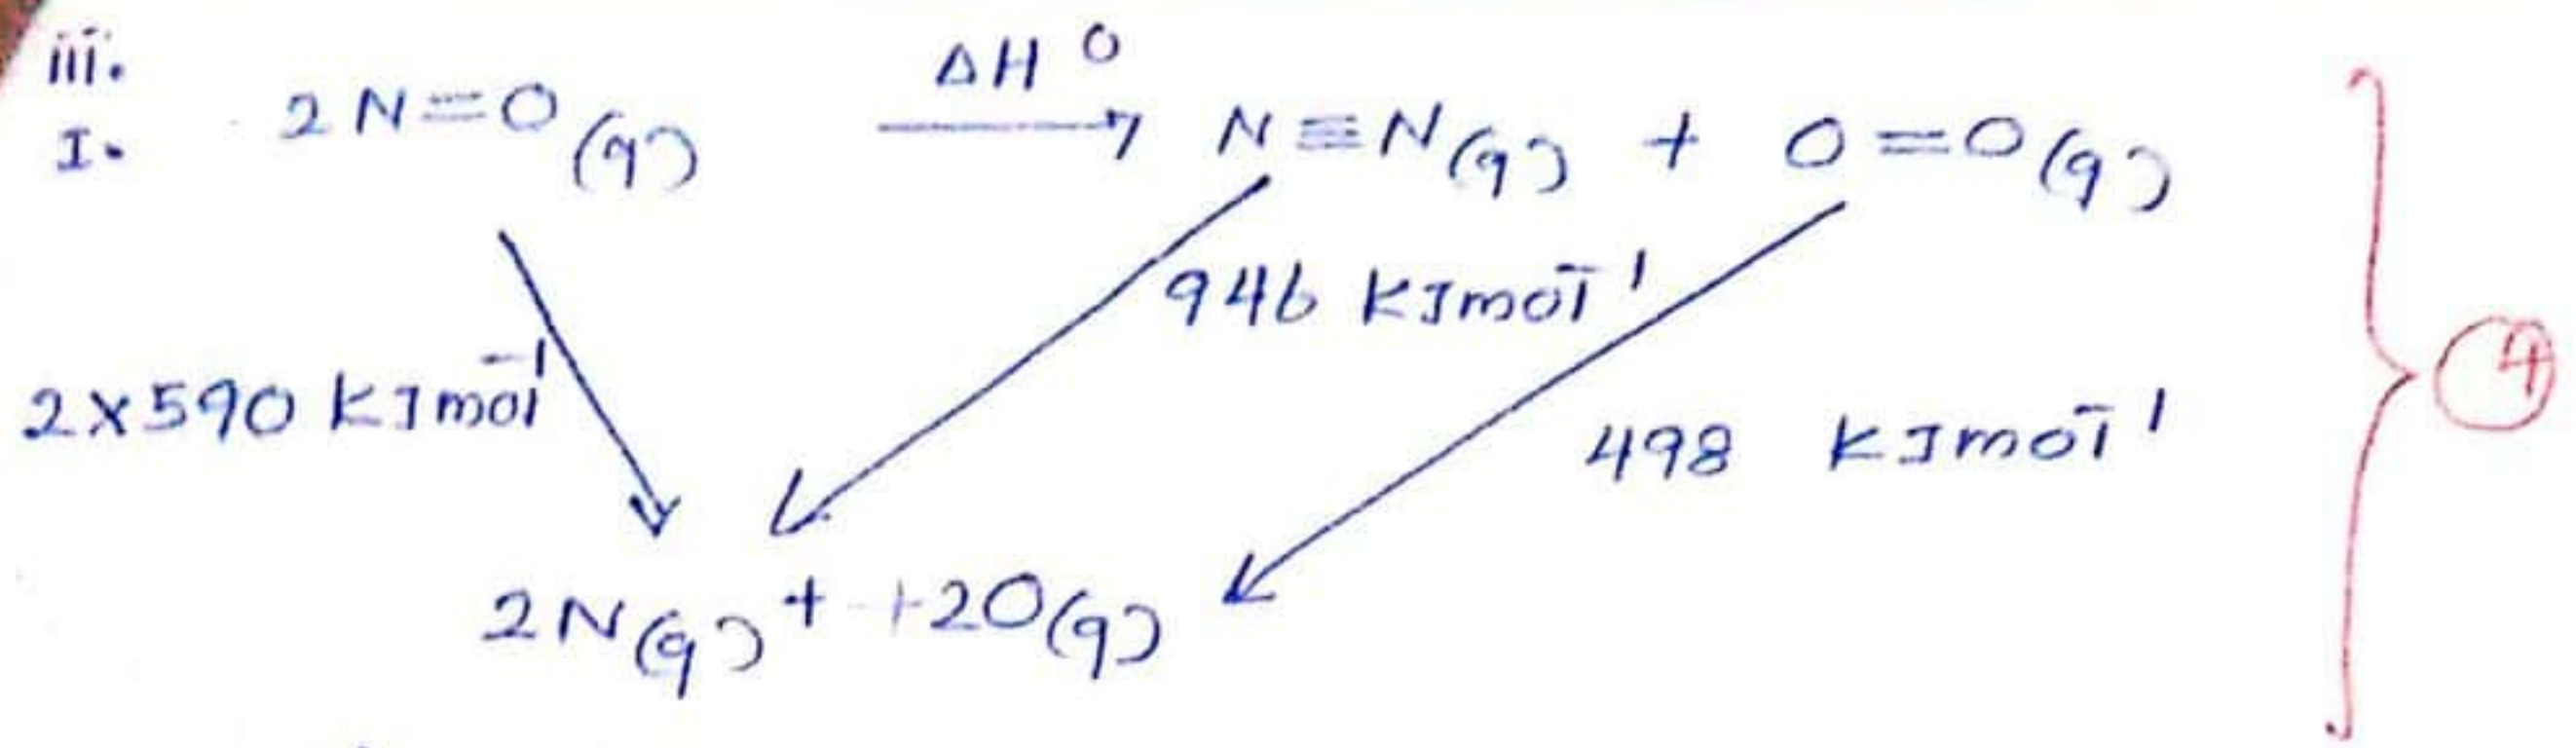 iii.
I. 2N=O(g) ΔH⁰ → N≡N(g) + O=O(g)
946 kJmol⁻¹
2×590 kJmol⁻¹
498 kJmol⁻¹
2N(g) + +2O(g)
4